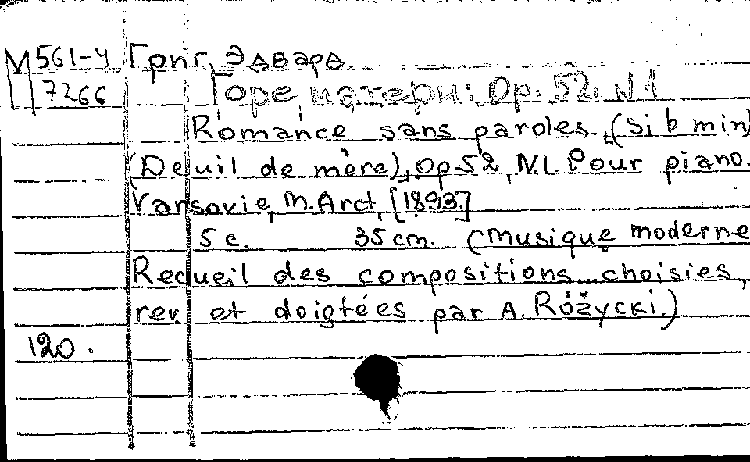 М 561-4 Григ, Эдвард
7266 Горе матери. Op. 52. N.1
Romance sans paroles, (si b min)
(Deuil de mère), Op 52, N.1. Pour piano.
Varsovie, M. Arct, [1893]
5 c. 35 cm. (Musique moderne
Recueil des compositions choisies,
rev. et doigtées par A. Różycki.)
120.